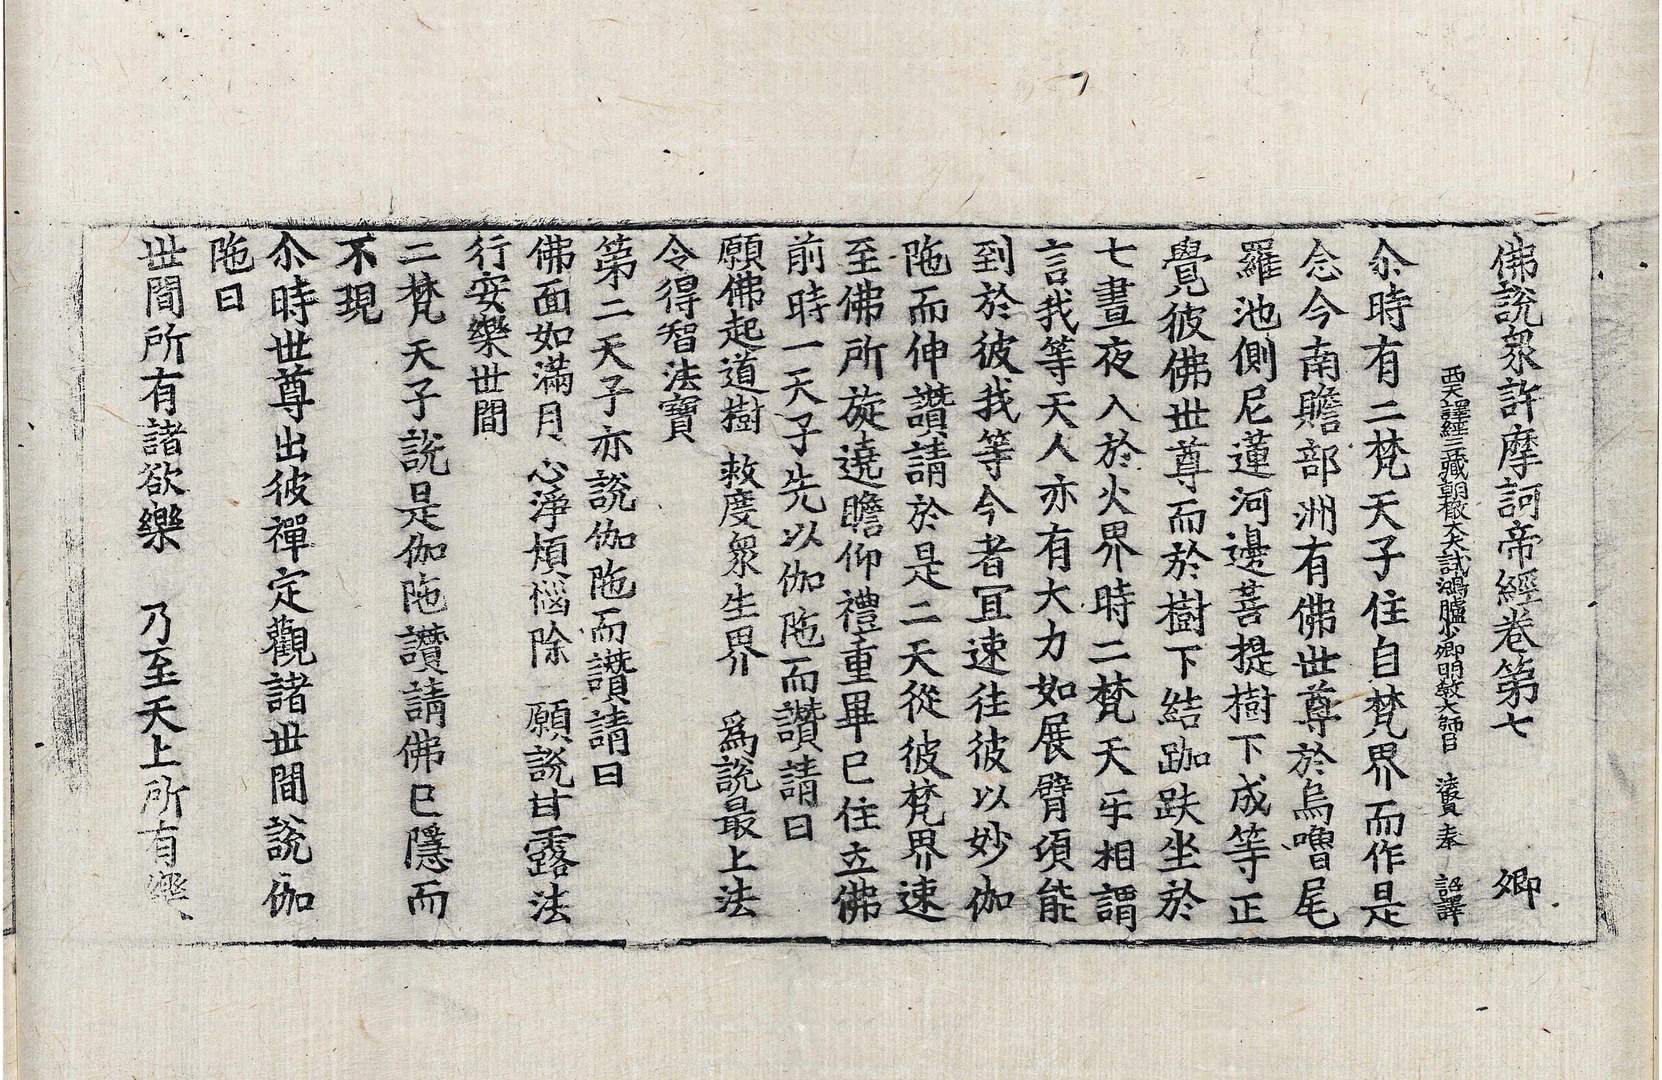 佛說衆許摩訶帝經卷第七 卿
西天譯經三藏朝散大夫試鴻臚少卿明教大師臣 法賢 奉 詔譯
尒時有二梵天子住自梵界而作是
念今南贍部洲有佛世尊於烏嚕尾
羅池側尼蓮河邊菩提樹下成等正
覺彼佛世尊而於樹下結跏趺坐於
七晝夜入於火界時二梵天子相謂
言我等天人亦有大力如展臂頃能
到於彼我等今者冝速往彼以妙伽
陁而伸讚請於是二天從彼梵界速
至佛所旋遶瞻仰禮重畢已住立佛
前時一天子先以伽陁而讚請曰
願佛起道樹 救度衆生界 爲說最上法
令得智法寶
第二天子亦說伽陁而讚請曰
佛面如滿月 心淨煩惱除 願說甘露法
行安樂世間
二梵天子說是伽陁讚請佛已隱而
不現
尒時世尊出彼禪定觀諸世間說伽
陁曰
世間所有諸欲樂 乃至天上所有樂